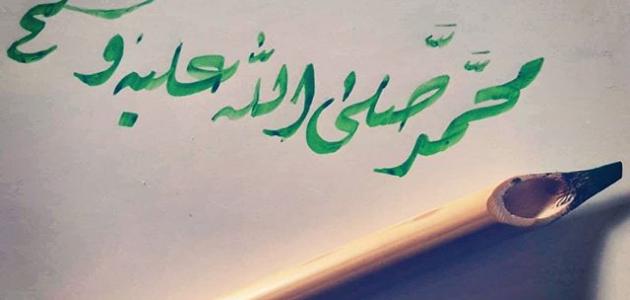 محمّد صَلى الله عليه وسلم